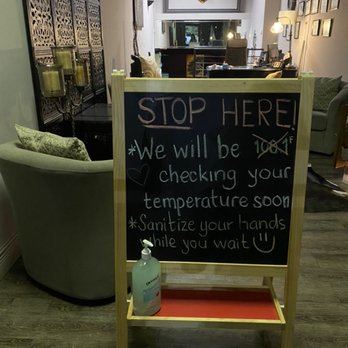 STOP HERE!
*We will be 100.4°F
checking your
temperature soon
*Sanitize your hands
while you wait